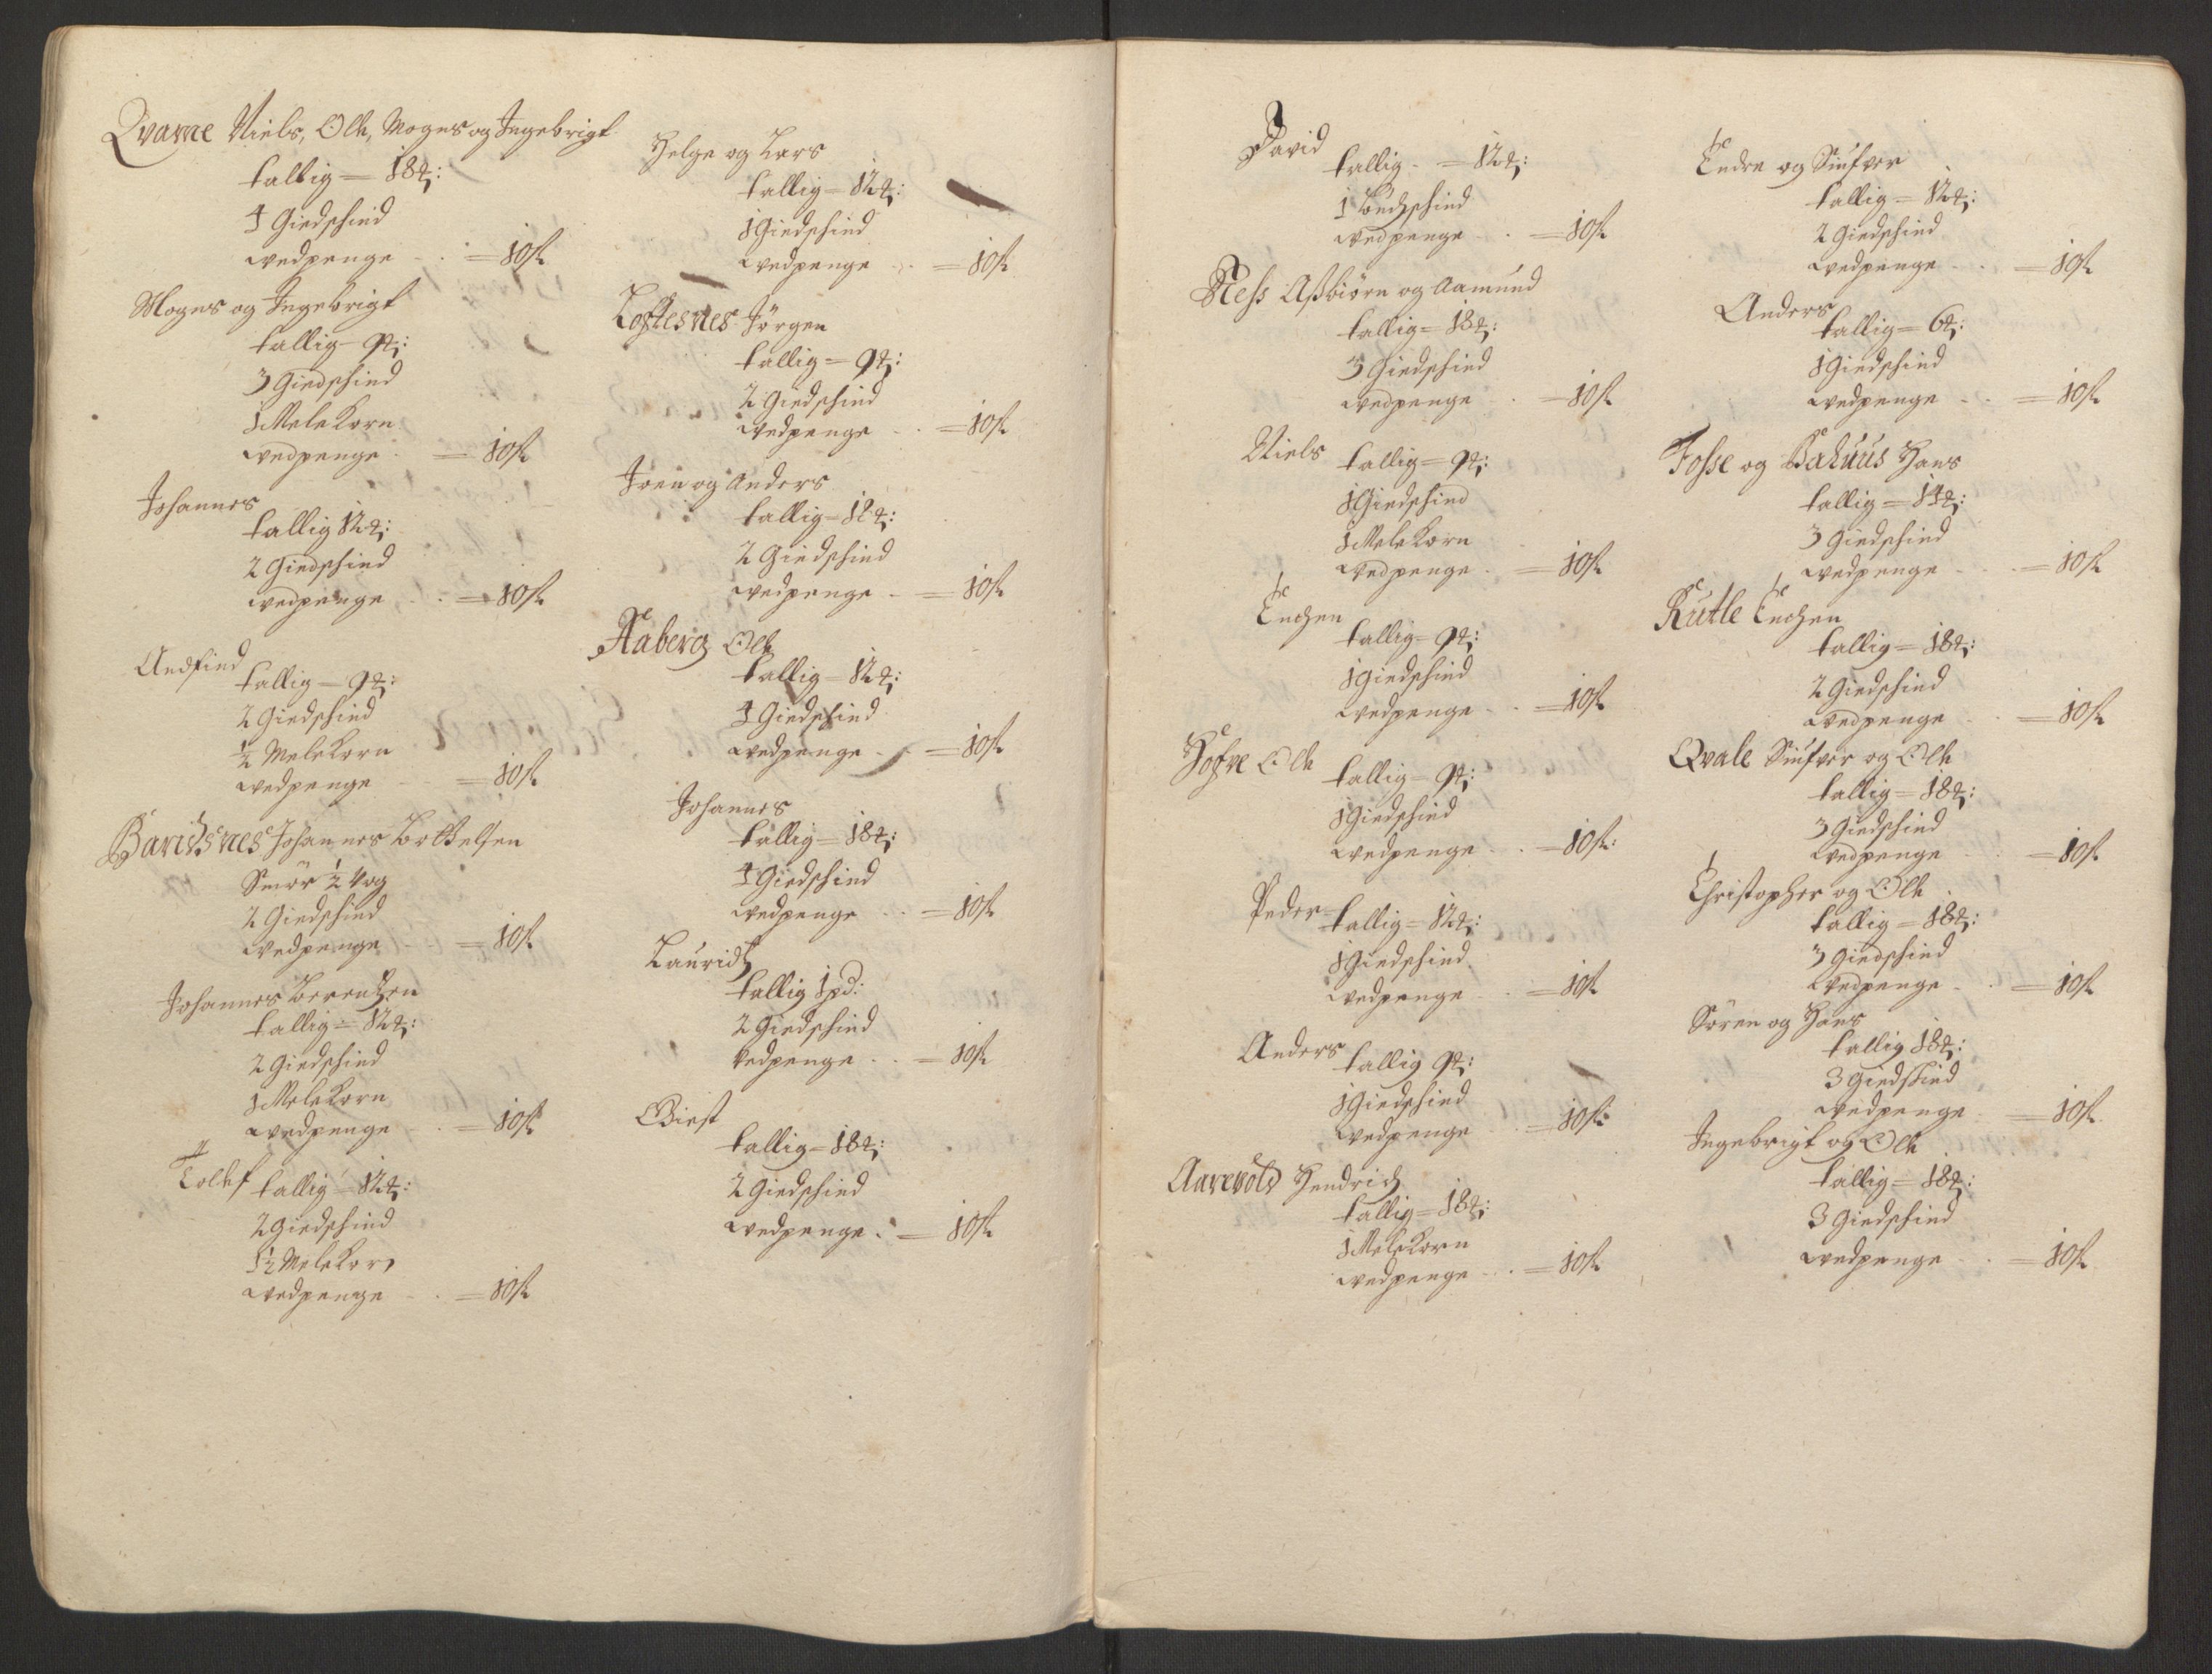 Qvarne Niels, Olle, Mogns og Ingebrigt
tallig = 18 ℔:
4 Giedschind
vedpenge - . = 10 ß
Mogns og Ingebrigt
tallig - 9 ℔:
3 Giedschind
1 Mele Korn
vedpenge . = 10 ß
Johannes
tallig 12 ℔:
2 Giedschind
vedpenge - . = 10 ß
Andfind
tallig = 9 ℔:
2 Giedschind
½ Mele Korn
vedpenge - = 10 ß
Baridsnes Johannes Botthelsen
Smör ½ Vog
2 Giedschind
vedpenge - = 10 ß
Johannes Berentzen
tallig = 12 ℔:
2 Giedschind
1 Mele Korn
vedpenge - . = 10 ß
Tollef
tallig = 12 ℔:
2 Giedschind
1½ Mele Korn
vedpenge - . = 10 ß
Helge og Lars
tallig = 12 ℔:
1 Giedschind
vedpenge - . = 10 ß
Loftesnes Jörgen
tallig = 9 ℔:
2 Giedschind
vedpenge - . = 10 ß
Joen og Anders
tallig = 12 ℔:
2 Giedschind
vedpenge - = 10 ß
Aaberg Olle
tallig = 12 ℔:
4 Giedschind
vedpenge - = 10 ß
Johannes
tallig = 18 ℔:
4 Giedschind
vedpenge - . = 10 ß
Lauridtz
tallig 1 pd:
2 Giedschind
vedpenge - . = 10 ß
Giest
tallig = 18 ℔:
2 Giedschind
vedpenge . = 10 ß
David
tallig - = 12 ℔:
1 Buchschind
vedpenge - . = 10 ß
Ness Assbiörn og Aamund
tallig = 18 ℔:
3 Giedschind
vedpenge . = 10 ß
Niels
tallig = 9 ℔:
1 Giedschind
1 Mele Korn
vedpenge . = 10 ß
Erichen
tallig = 9 ℔:
1 Giedschind
vedpenge - . = 10 ß
Hofve Olle
tallig = 9 ℔:
1 Giedschind
vedpenge - . = 10 ß:
Peder
tallig = 12 ℔:
1 Giedschind
vedpenge - . = 10 ß
Anders
tallig 9 ℔:
1 Giedschind
vedpenge - = 10 ß:
Aarevold Hendrich
tallig = 18 ℔:
1 Mele Korn
vedpenge - . = 10 ß
Endre og Siufver
tallig = 12 ℔:
2 Giedschind
vedpenge - . = 10 ß
Anders
tallig = 6 ℔:
1 Giedschind
vedpenge - . = 10 ß
Fosse og Bakuus Hans
tallig = 14 ℔:
3 Giedschind
vedpenge - . = 10 ß
Rutle Erichen
tallig = 18 ℔:
2 Giedschind
vedpenge - . = 10 ß
Qvale Siufver og Olle
tallig = 18 ℔:
3 Giedschind
vedpenge - . = 10 ß
Christopher og Olle
tallig = 18 ℔:
3 Giedschind
vedpenge - . = 10 ß
Sören og Hans
tallig 18 ℔:
3 Giedschind
vedpenge - = 10 ß
Ingebrigt og Olle
tallig = 18 ℔:
3 Giedschind
vedpenge - . = 10 ß